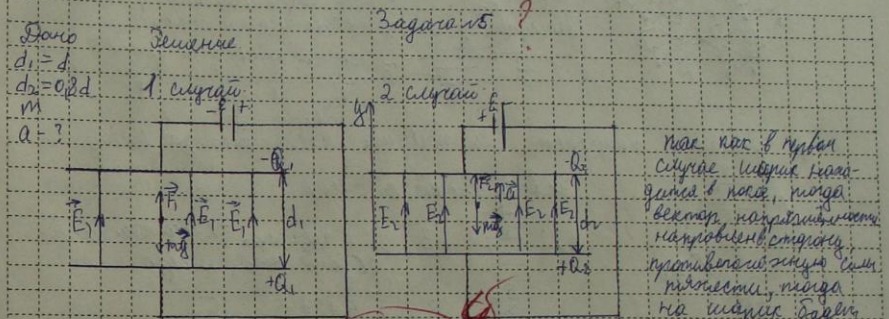 Задача №5 ?
Дано
Решение
d₁ = d
d₂ = 0,2d
m
a - ?
1 случай
2 случай
- E +
y
+ E
-Q₁
-Q₂
E₁ F₁ E₁ E₁ d₁
mg
E₂ E₂ F₂ a E₂ E₂ d₂
mg
+Q₁
+Q₂
так как в первом
случае шарик нахо-
дится в покое, тогда
вектор напряженности
направлен в сторону,
противоположную силе
тяжести, тогда
на шарик будет